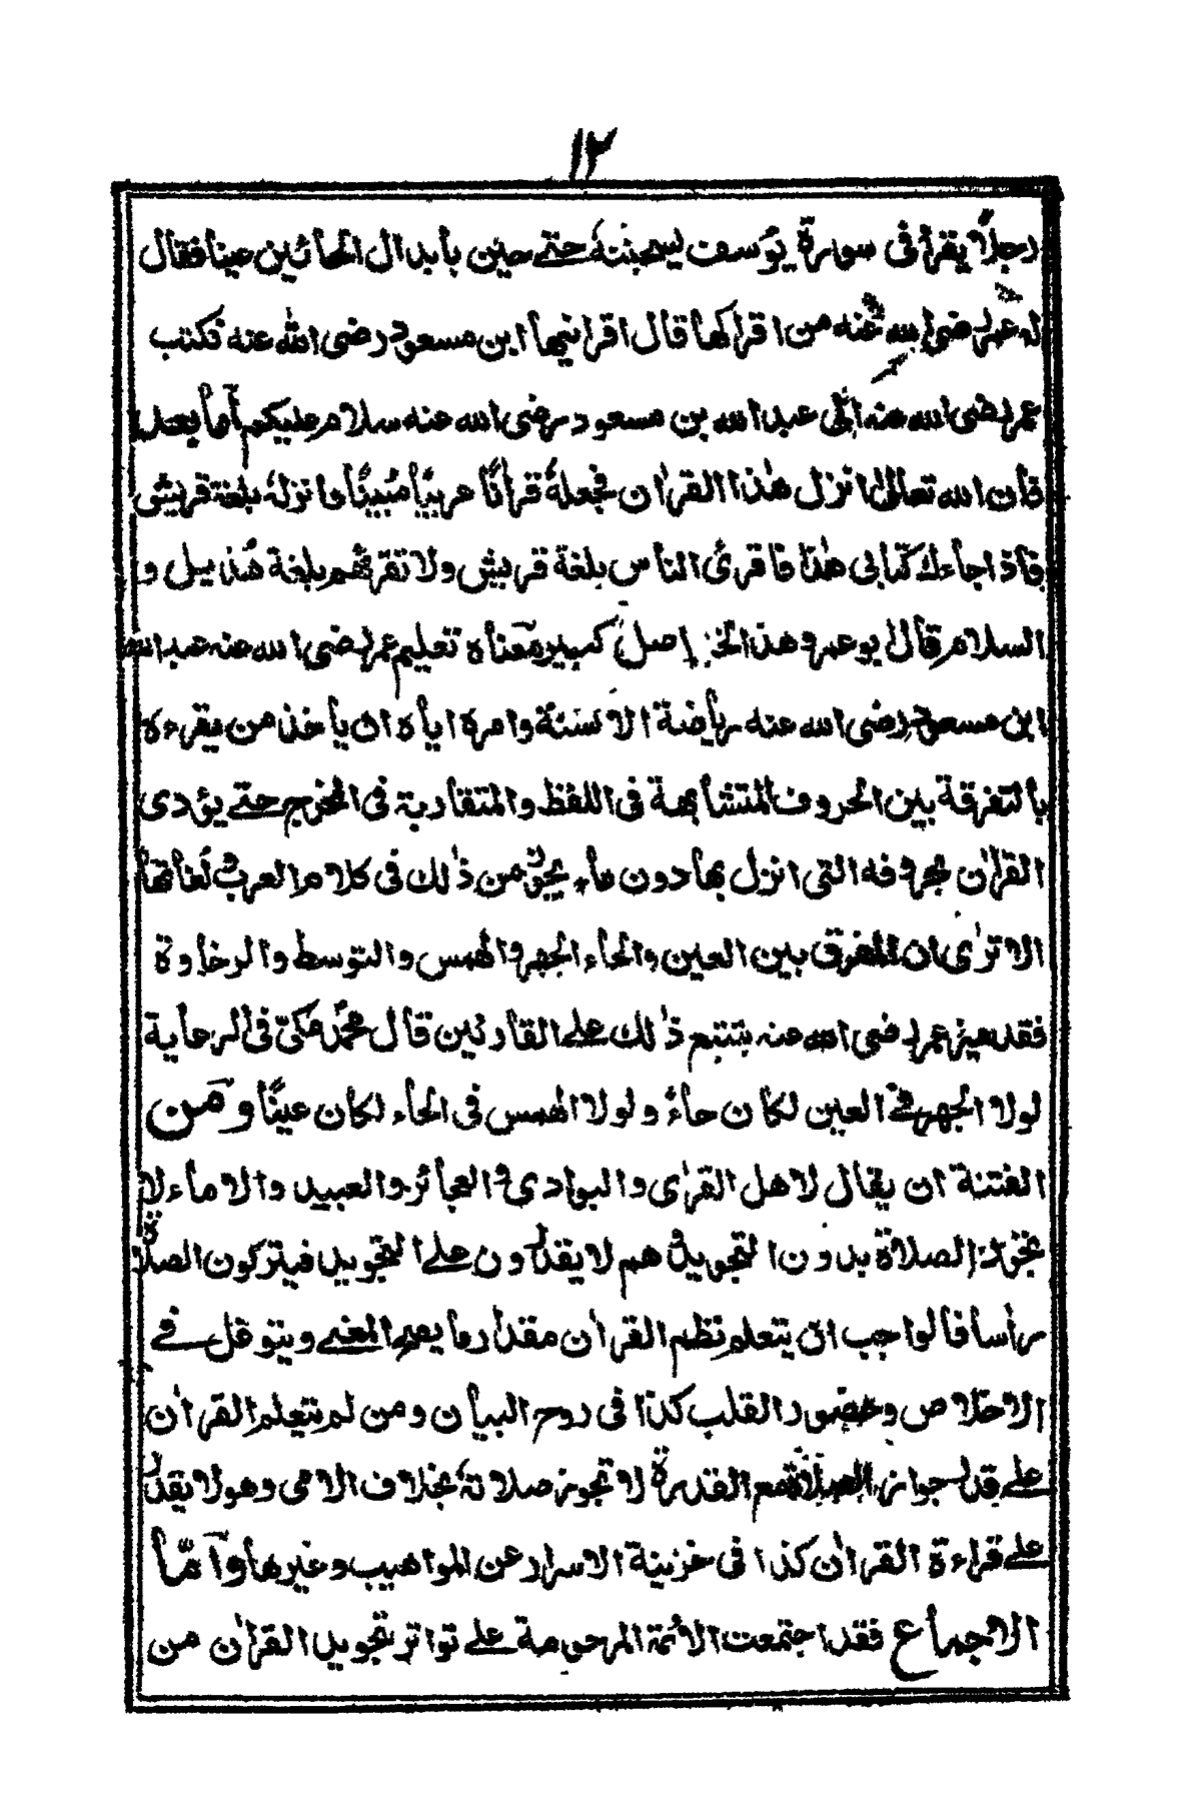 ١٢
رجلاً يقرأ فى سورة يوسف ليسجننه حتى حين بأبدال الحائين عينا فقال
له عمر رضى الله عنه من اقراكها قال اقرانيها ابن مسعود رضى الله عنه فكتب
عمر رضى الله عنه الى عبد الله بن مسعود رضى الله عنه سلام عليكم أما بعد
فأن الله تعالى انزل هذا القرآن فجعله قرآنًا عربيًا مُبينًا وانزله بلغة قريش
فأذا جاءك كتابى هذا فاقرئ الناس بلغة قريش ولا تقرئهم بلغة هُذيل و
السلام قال ابو عمرو هذا الخبر اصل كبير معناه تعليم عمر رضى الله عنه عبد الله
ابن مسعود رضى الله عنه رياضة الالسنة وامره اياه ان يأخذ من يقرءه
بالتفرقة بين الحروف المتشابهة فى اللفظ والمتقاربة فى المخرج حتى يؤدى
القرآن بحروفه التى انزل بها دون ماء يجوز من ذٰلك فى كلام العرب ولُغاتها
الا ترٰى ان المفرق بين العين والحاء الجهر والهمس والتوسط والرخاوة
فقد ميز عمر رضى الله عنه بتتبع ذٰلك على القارئين قال محمد مكىّ فى الرعاية
لولا الجهر فى العين لكان حاءً ولولا الهمس فى الحاء لكان عينًا ومن
الفتنة ان يقال لاهل القرٰى والبوادى والعجائز والعبيد والاماء لا
تجوز الصلاة بدون التجويد وهم لا يقدرون على التجويد فيتركون الصلاة
رأسا فالواجب ان يتعلم نظم القرآن مقدار ما يصح المعنى ويتوغل فى
الاخلاص وحضور القلب كذا فى روح البيان ومن لم يتعلم القرآن
على قدر جواز الصلاة مع القدرة لا تجوز صلاته بخلاف الامى وهو لا يقدر
على قراءة القرآن كذا فى خزينة الاسرار عن المواهيب وغيرها وأمّا
الاجماع فقد اجتمعت الائمة المرحومة على تواتر تجويد القرآن من